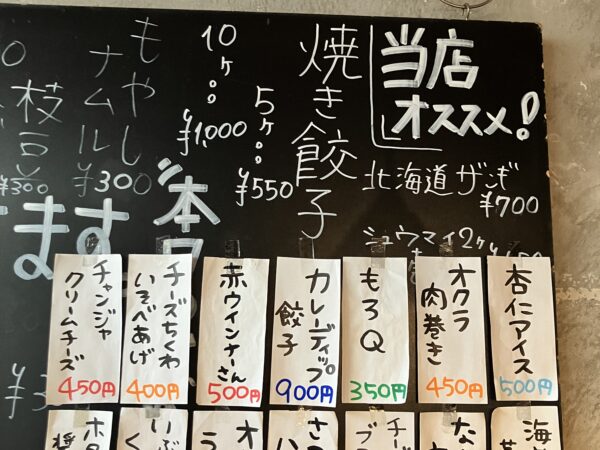 当店
オススメ!
焼き餃子
5ヶ
¥550
10ヶ
¥1,000
もやし
ナムル
¥300
枝豆
¥300
北海道 ザンギ
¥700
シュウマイ2ヶ
ます
杏仁アイス
500円
オクラ
肉巻き
450円
もろQ
350円
カレーディップ
餃子
900円
赤ウインナーさん
500円
チーズちくわ
いそべあげ
400円
チャンジャ
クリームチーズ
450円